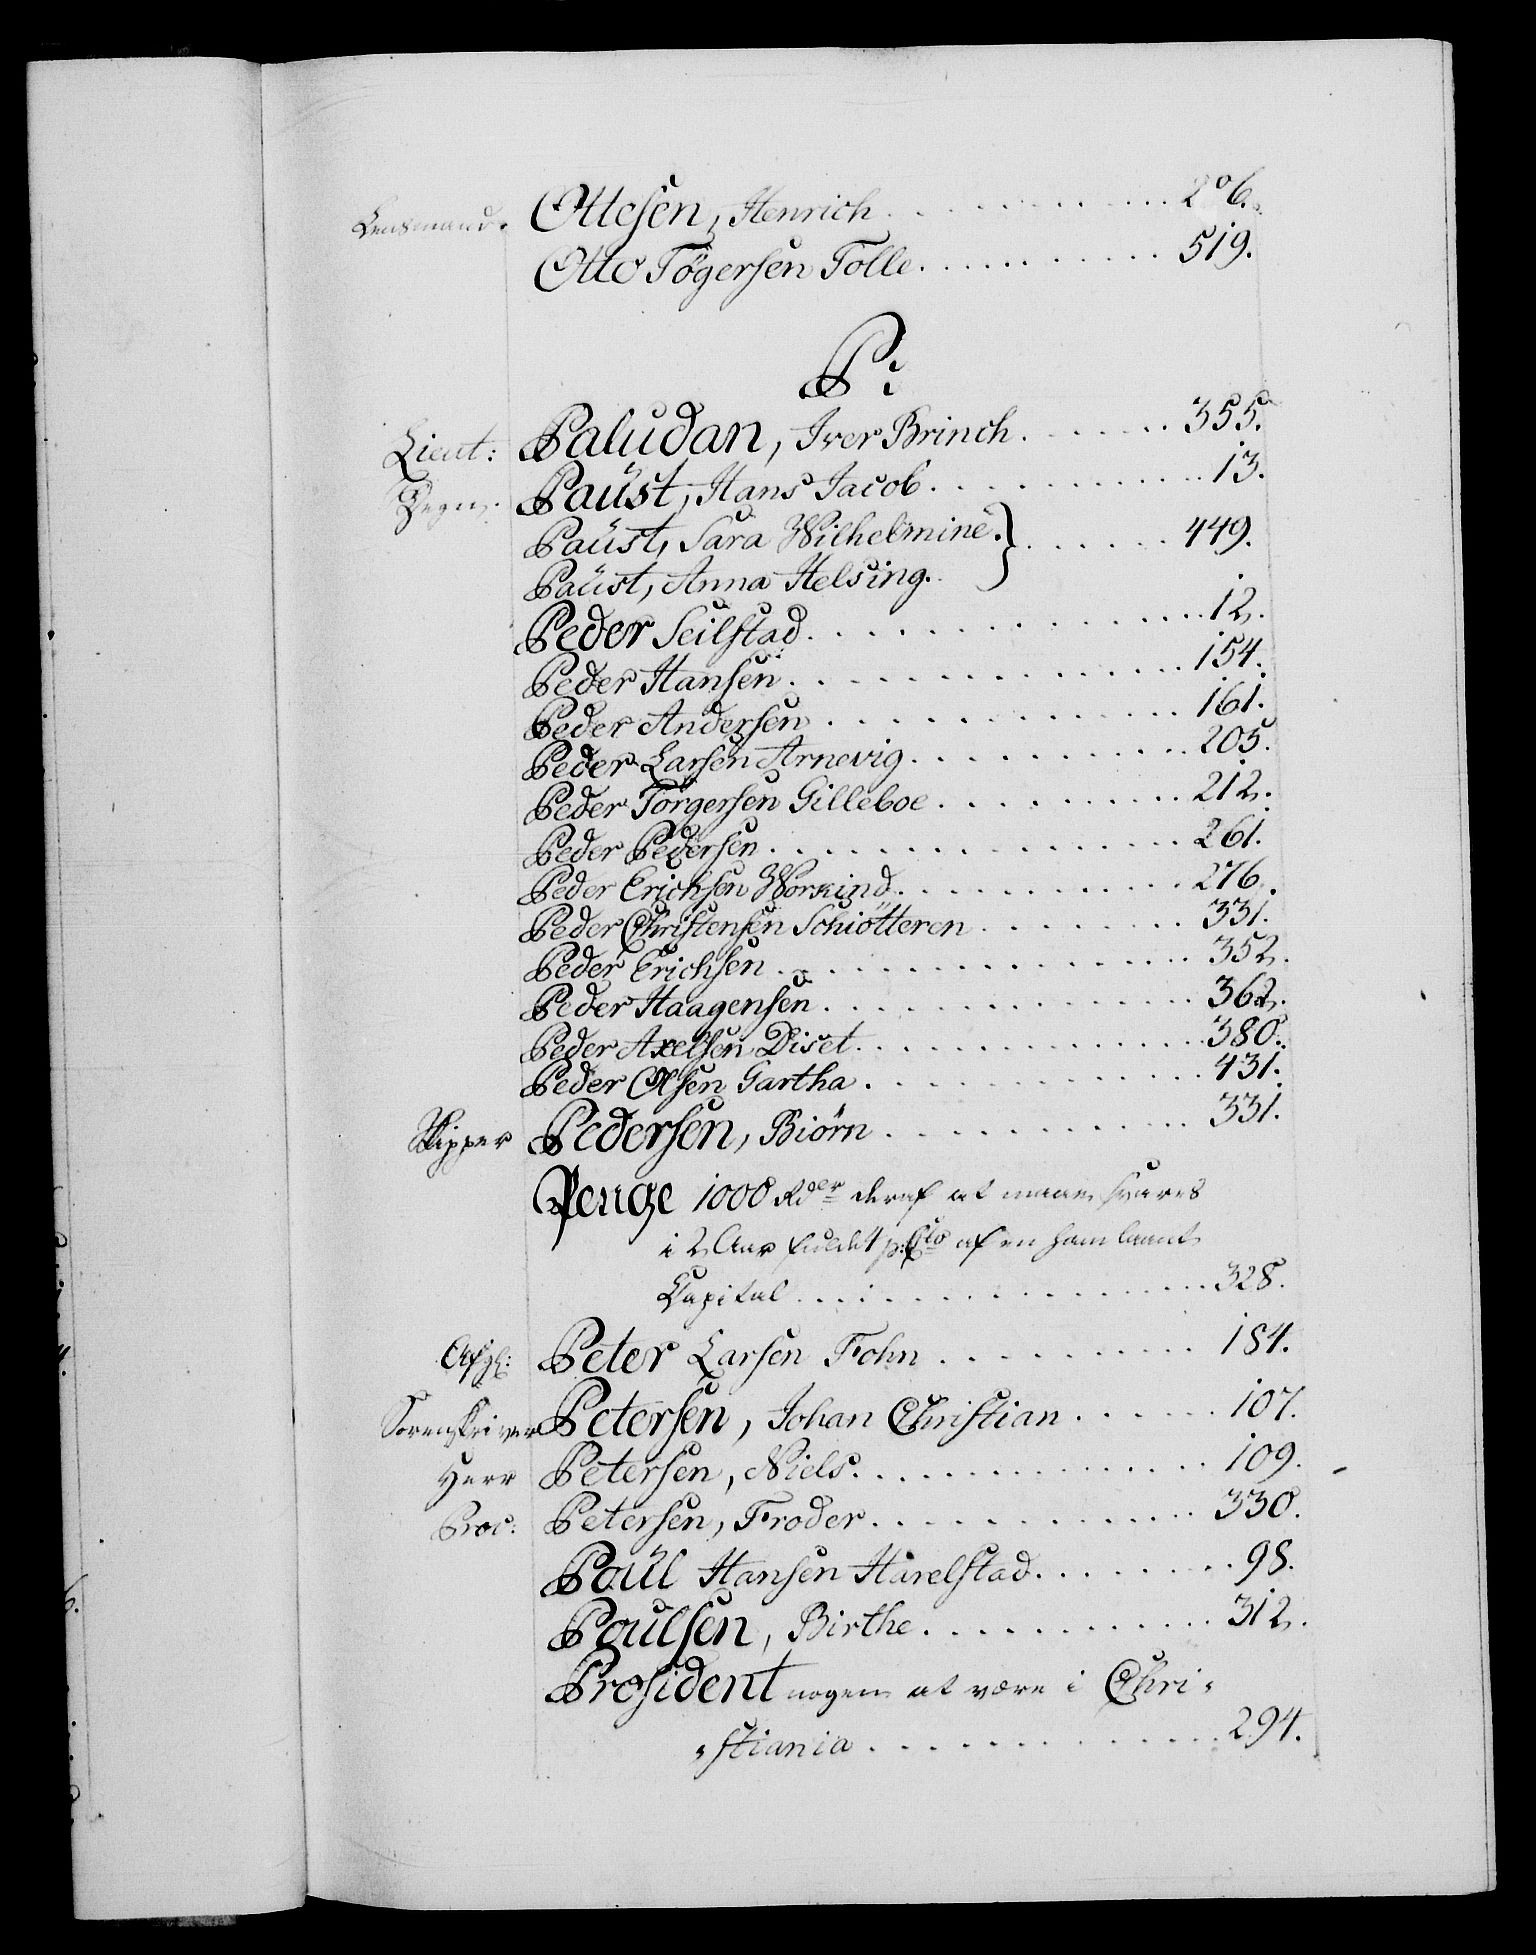 Lensmand. Ottesen, Henrich . . . . . . . . . . . 206.
Otto Tögersen Tolle . . . . . . . . . . . 519.
P:
Lieut: Paludan, Iver Brinch . . . . . . . 355.
Degn. Paüst, Hans Jacob . . . . . . . . . . . 13.
Paüst, Sara Wilhelmine. } . . . . . . . 449.
Paüst, Anna Helsing.
Peder Seilstad . . . . . . . . . . . . . . . 12.
Peder Hansen . . . . . . . . . . . . . . . 154.
Peder Andersen . . . . . . . . . . . . . . 161.
Peder Larsen Arnevig . . . . . . . . . . . 205.
Peder Törgersen Gilleboe . . . . . . . . . . 212.
Peder Pedersen . . . . . . . . . . . . . . . 261.
Peder Erichsen Workind . . . . . . . . . . 276.
Peder Christensen Schiötteren . . . . . . . . 331.
Peder Erichsen . . . . . . . . . . . . . . . 352.
Peder Haagensen . . . . . . . . . . . . . . 362.
Peder Axelsen Diset . . . . . . . . . . . . . 380.
Peder Olsen Gartha . . . . . . . . . . . . . 431.
Skipper Pedersen, Biörn . . . . . . . . . . . . 331.
Penge 1000 Rder deraf at maae svares
i 2 Aar fulde 4 p: Cto af en ham laant
Capital . . . . . . . . . . . . . . . . . 328.
Afgl: Peter Larsen Fohn . . . . . . . . . . 184.
Sorenskriver Petersen, Johan Christian . . . . . . 107.
Herr Petersen, Niels . . . . . . . . . . . . . . 109.
Proc: Petersen, Froder . . . . . . . . . . . . . 330.
Poül Hansen Harelstad . . . . . . . . 98.
Poulsen, Birthe . . . . . . . . . . . . 312.
Præsident nogen at være i Chri-
-stiania . . . . . . . . . . . . . . . 294.